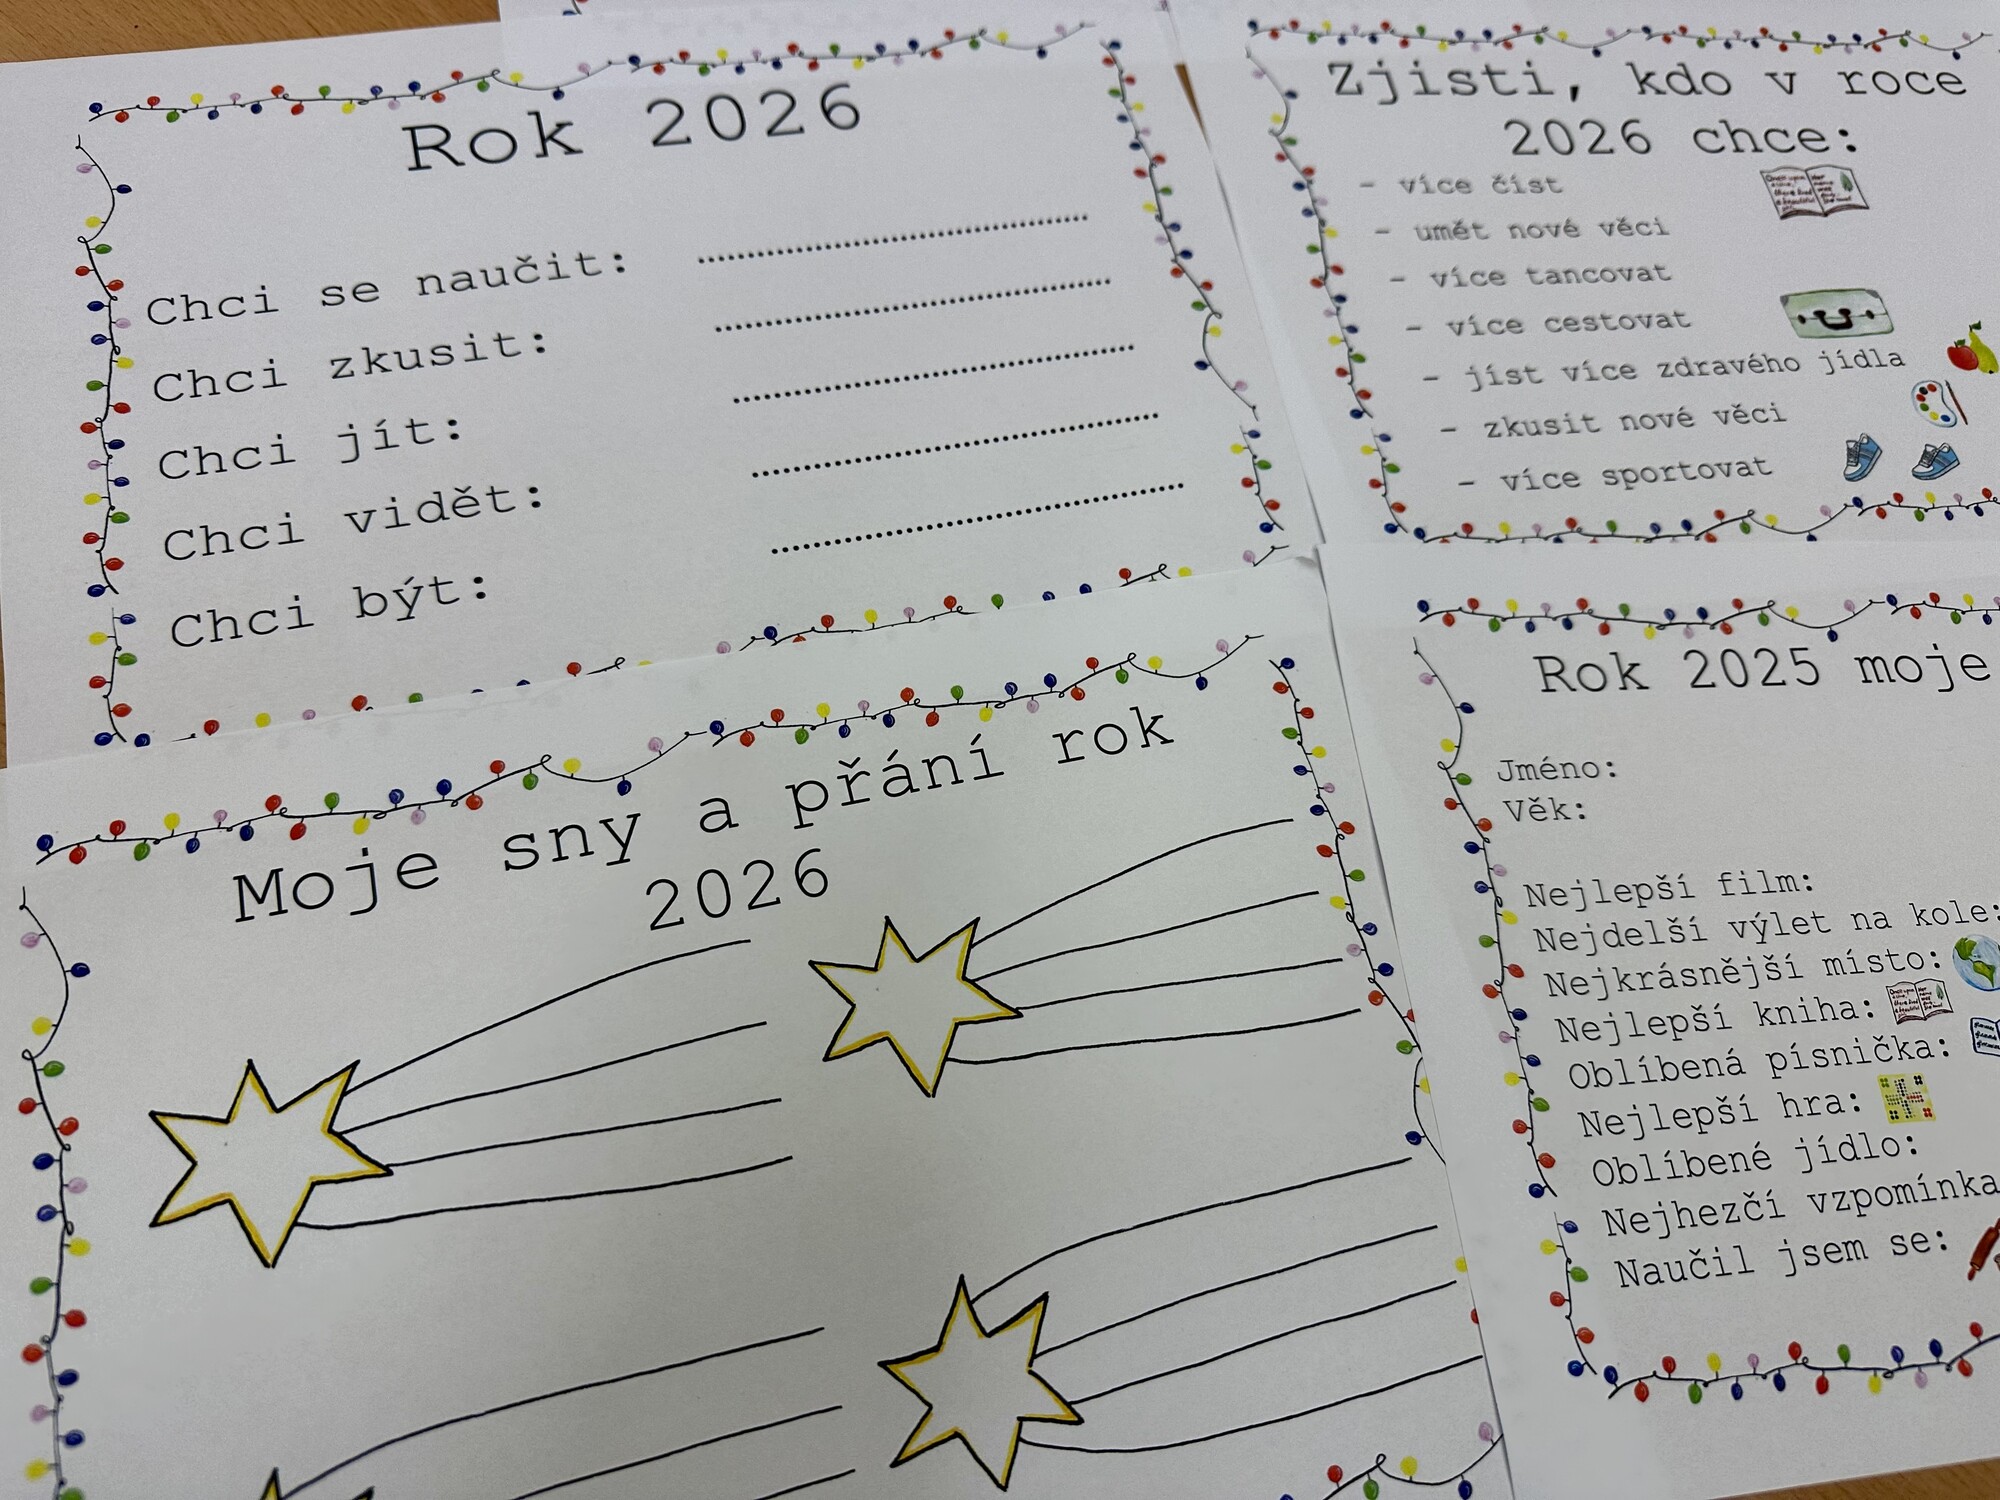 Rok 2026
Chci se naučit:
Chci zkusit:
Chci jít:
Chci vidět:
Chci být:
Zjisti, kdo v roce
2026 chce:
- více číst
- umět nové věci
- více tancovat
- více cestovat
- jíst více zdravého jídla
- zkusit nové věci
- více sportovat
Moje sny a přání rok
2026
Rok 2025 moje
Jméno:
Věk:
Nejlepší film:
Nejdelší výlet na kole:
Nejkrásnější místo:
Nejlepší kniha:
Oblíbená písnička:
Nejlepší hra:
Oblíbené jídlo:
Nejhezčí vzpomínka
Naučil jsem se: